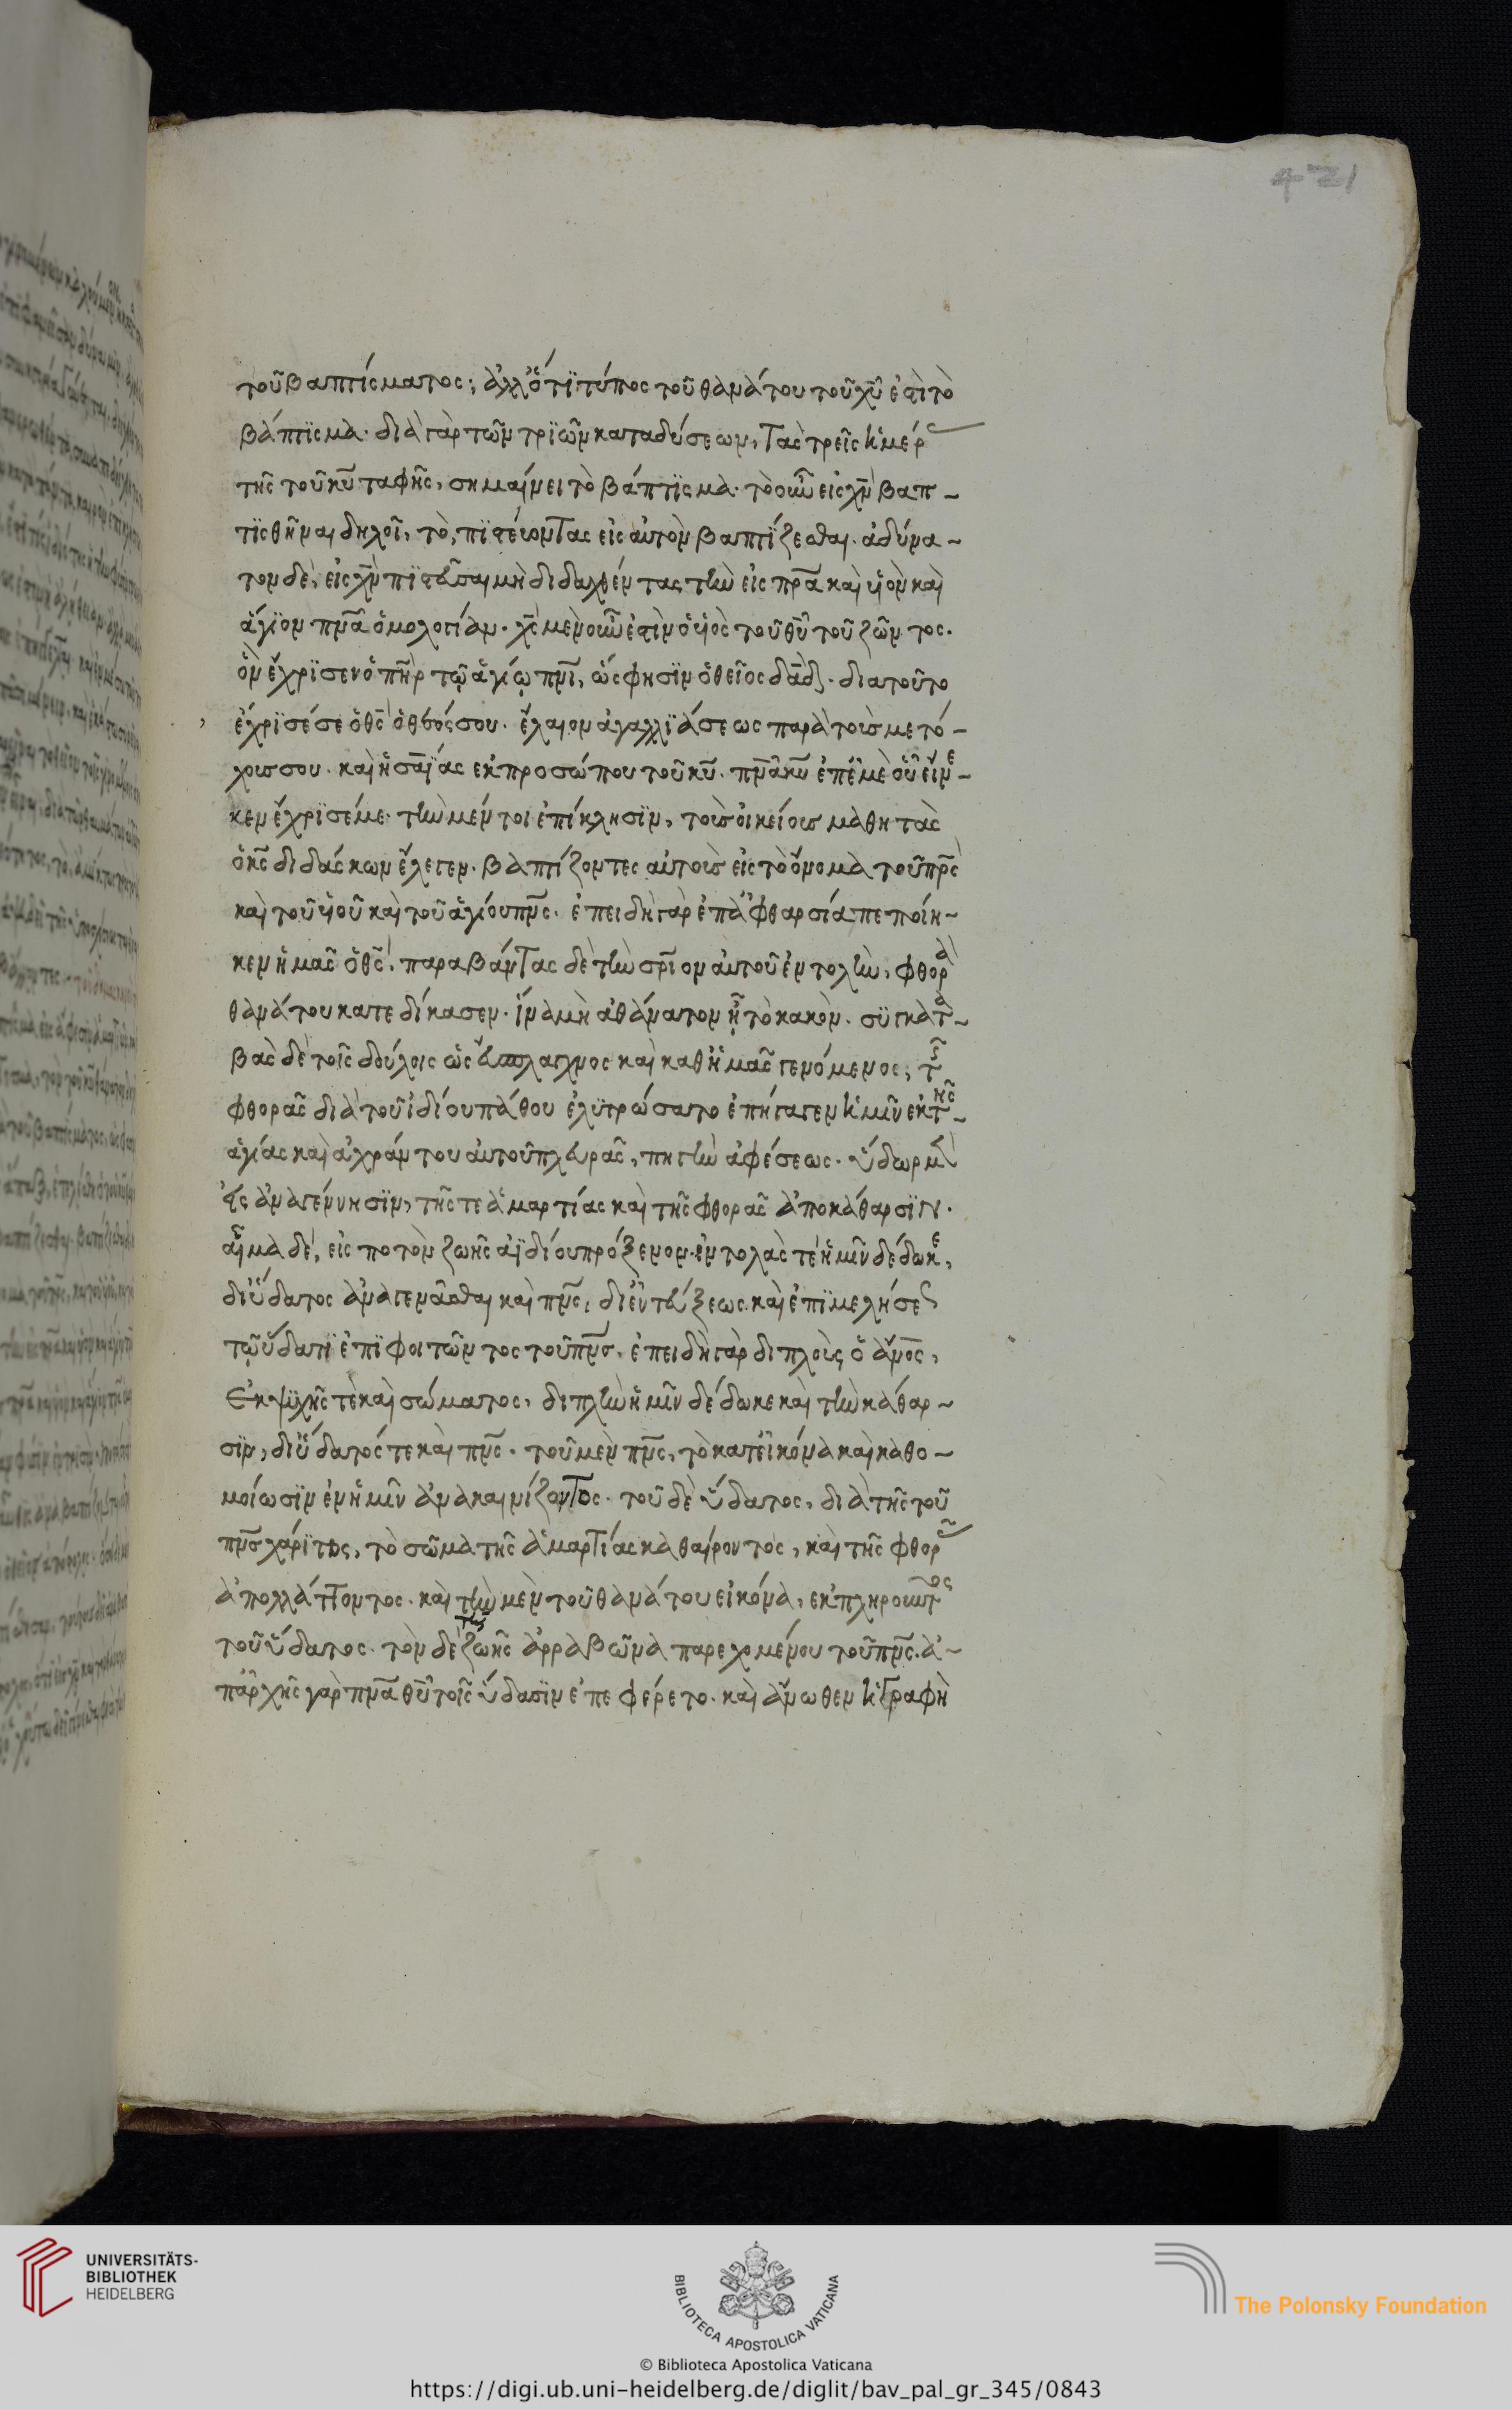 421
τοῦ βαπτίσματος; ἀλλ' ὅτι τύπος τοῦ θανάτου τοῦ χῦ ἐστὶ τὸ
βάπτισμα· διὰ γὰρ τῶν τριῶν καταδύσεων, τὰς τρεῖς ἡμέρ
τῆς τοῦ κῦ ταφῆς, σημαίνει τὸ βάπτισμα· τὸ οὖν εἰς χν βαπ-
τισθῆναι δηλοῖ, τὸ, πιστεύοντας εἰς αὐτὸν βαπτίζεσθαι. ἀδύνα-
τον δὲ, εἰς χν πιστεῦσαι μὴ διδαχθέντας τὴν εἰς πρα καὶ υἱὸν καὶ
ἅγιον πνα ὁμολογίαν. χς μὲν οὖν ἐστὶν ὁ υἱὸς τοῦ θῦ τοῦ ζῶντος.
ὃν ἔχρισεν ὁ πηρ τῷ ἁγίῳ πνι, ὥς φησιν ὁ θεῖος δαδ· διατοῦτο
ἔχρισέ σε ὁ θς ὁ θεός σου. ἔλαιον ἀγαλλιάσεως παρὰ τοὺς μετό-
χους σου. καὶ ἡσαΐας ἐκ προσώπου τοῦ κῦ. πνα κυ ἐπ' ἐμὲ οὗ εἵνε-
κεν ἔχρισέ με. τὴν μέντοι ἐπίκλησιν, τοὺς οἰκείους μαθητὰς
ὁ κς διδάσκων ἔλεγεν. βαπτίζοντες αὐτοὺς εἰς τὸ ὄνομα τοῦ πρς
καὶ τοῦ υἱοῦ καὶ τοῦ ἁγίου πνς. ἐπειδὴ γὰρ ἐπ' ἀφθαρσία πεποίη-
κεν ἡμᾶς ὁ θς, παραβάντας δὲ τὴν σριον αὐτοῦ ἐντολὴν, φθορᾷ
θανάτου κατεδίκασεν. ἵνα μὴ ἀθάνατον ᾖ τὸ κακὸν. συγκατα-
βὰς δὲ τοῖς δούλοις ὡς εὔσπλαγχνος καὶ καθ' ἡμᾶς γενόμενος, τῆς
φθορᾶς διὰ τοῦ ἰδίου πάθου ἐλυτρώσατο ἐπήγαγεν ἡμῖν ἐκ τῆς
ἁγίας καὶ ἀχράντου αὐτοῦ πλευρᾶς, πηγὴν ἀφέσεως. ὕδωρ μὲν
εἰς ἀναγέννησιν, τῆς τε ἁμαρτίας καὶ τῆς φθορᾶς ἀποκάθαρσιν.
αἷμα δὲ, εἰς ποτὸν ζωῆς ἀϊδίου πρόξενον. ἐντολὰς τὲ ἡμῖν δέδωκε,
δι' ὕδατος ἀναγεννᾶσθαι καὶ πνς, δι' ἐντεύξεως καὶ ἐπιμελήσε
τῷ ὕδατι ἐπιφοιτῶντος τοῦ πνς. ἐπειδὴ γὰρ διπλοὺς ὁ ἄνος,
ἐκ ψυχῆς τὲ καὶ σώματος, διπλὴν ἡμῖν δέδωκε καὶ τὴν κάθαρ-
σιν, δι' ὕδατός τε καὶ πνς. τοῦ μὲν πνς, τὸ κατ' εἰκόνα καὶ καθο-
μοίωσιν ἐν ἡμῖν ἀνακαινίζοντος. τοῦ δὲ ὕδατος, διὰ τῆς τοῦ
πνς χάριτος, τὸ σῶμα τῆς ἁμαρτίας καθαίροντος, καὶ τῆς φθορᾶς
ἀπολλάττοντος. καὶ τὴν μὲν τοῦ θανάτου εἰκόνα, ἐκπληροῦντος
τοῦ ὕδατος. τὸν δὲ τῆς ζωῆς ἀρραβῶνα παρεχομένου τοῦ πνς. ἀ-
π' ἀρχῆς γὰρ πνα θῦ τοῖς ὕδασιν ἐπεφέρετο. καὶ ἄνωθεν ἡ γραφὴ
UNIVERSITÄTS-
BIBLIOTHEK
HEIDELBERG
BIBLIOTECA APOSTOLICA VATICANA
© Biblioteca Apostolica Vaticana
The Polonsky Foundation
https://digi.ub.uni-heidelberg.de/diglit/bav_pal_gr_345/0843